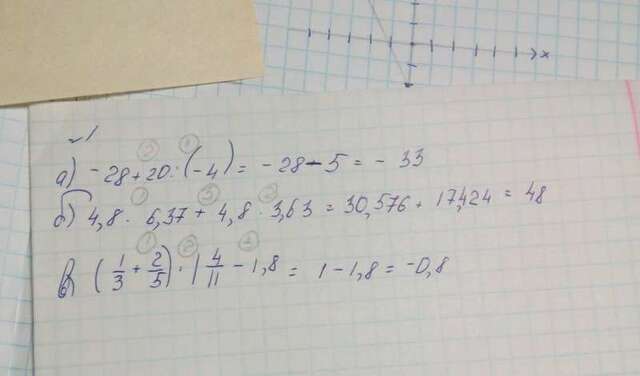 x
№1
а) -28+20:(-4) = -28-5 = -33
б) 4,8 · 6,37 + 4,8 · 3,63 = 30,576 + 17,424 = 48
в) (1/3 + 2/5) · 1 4/11 - 1,8 = 1 - 1,8 = -0,8